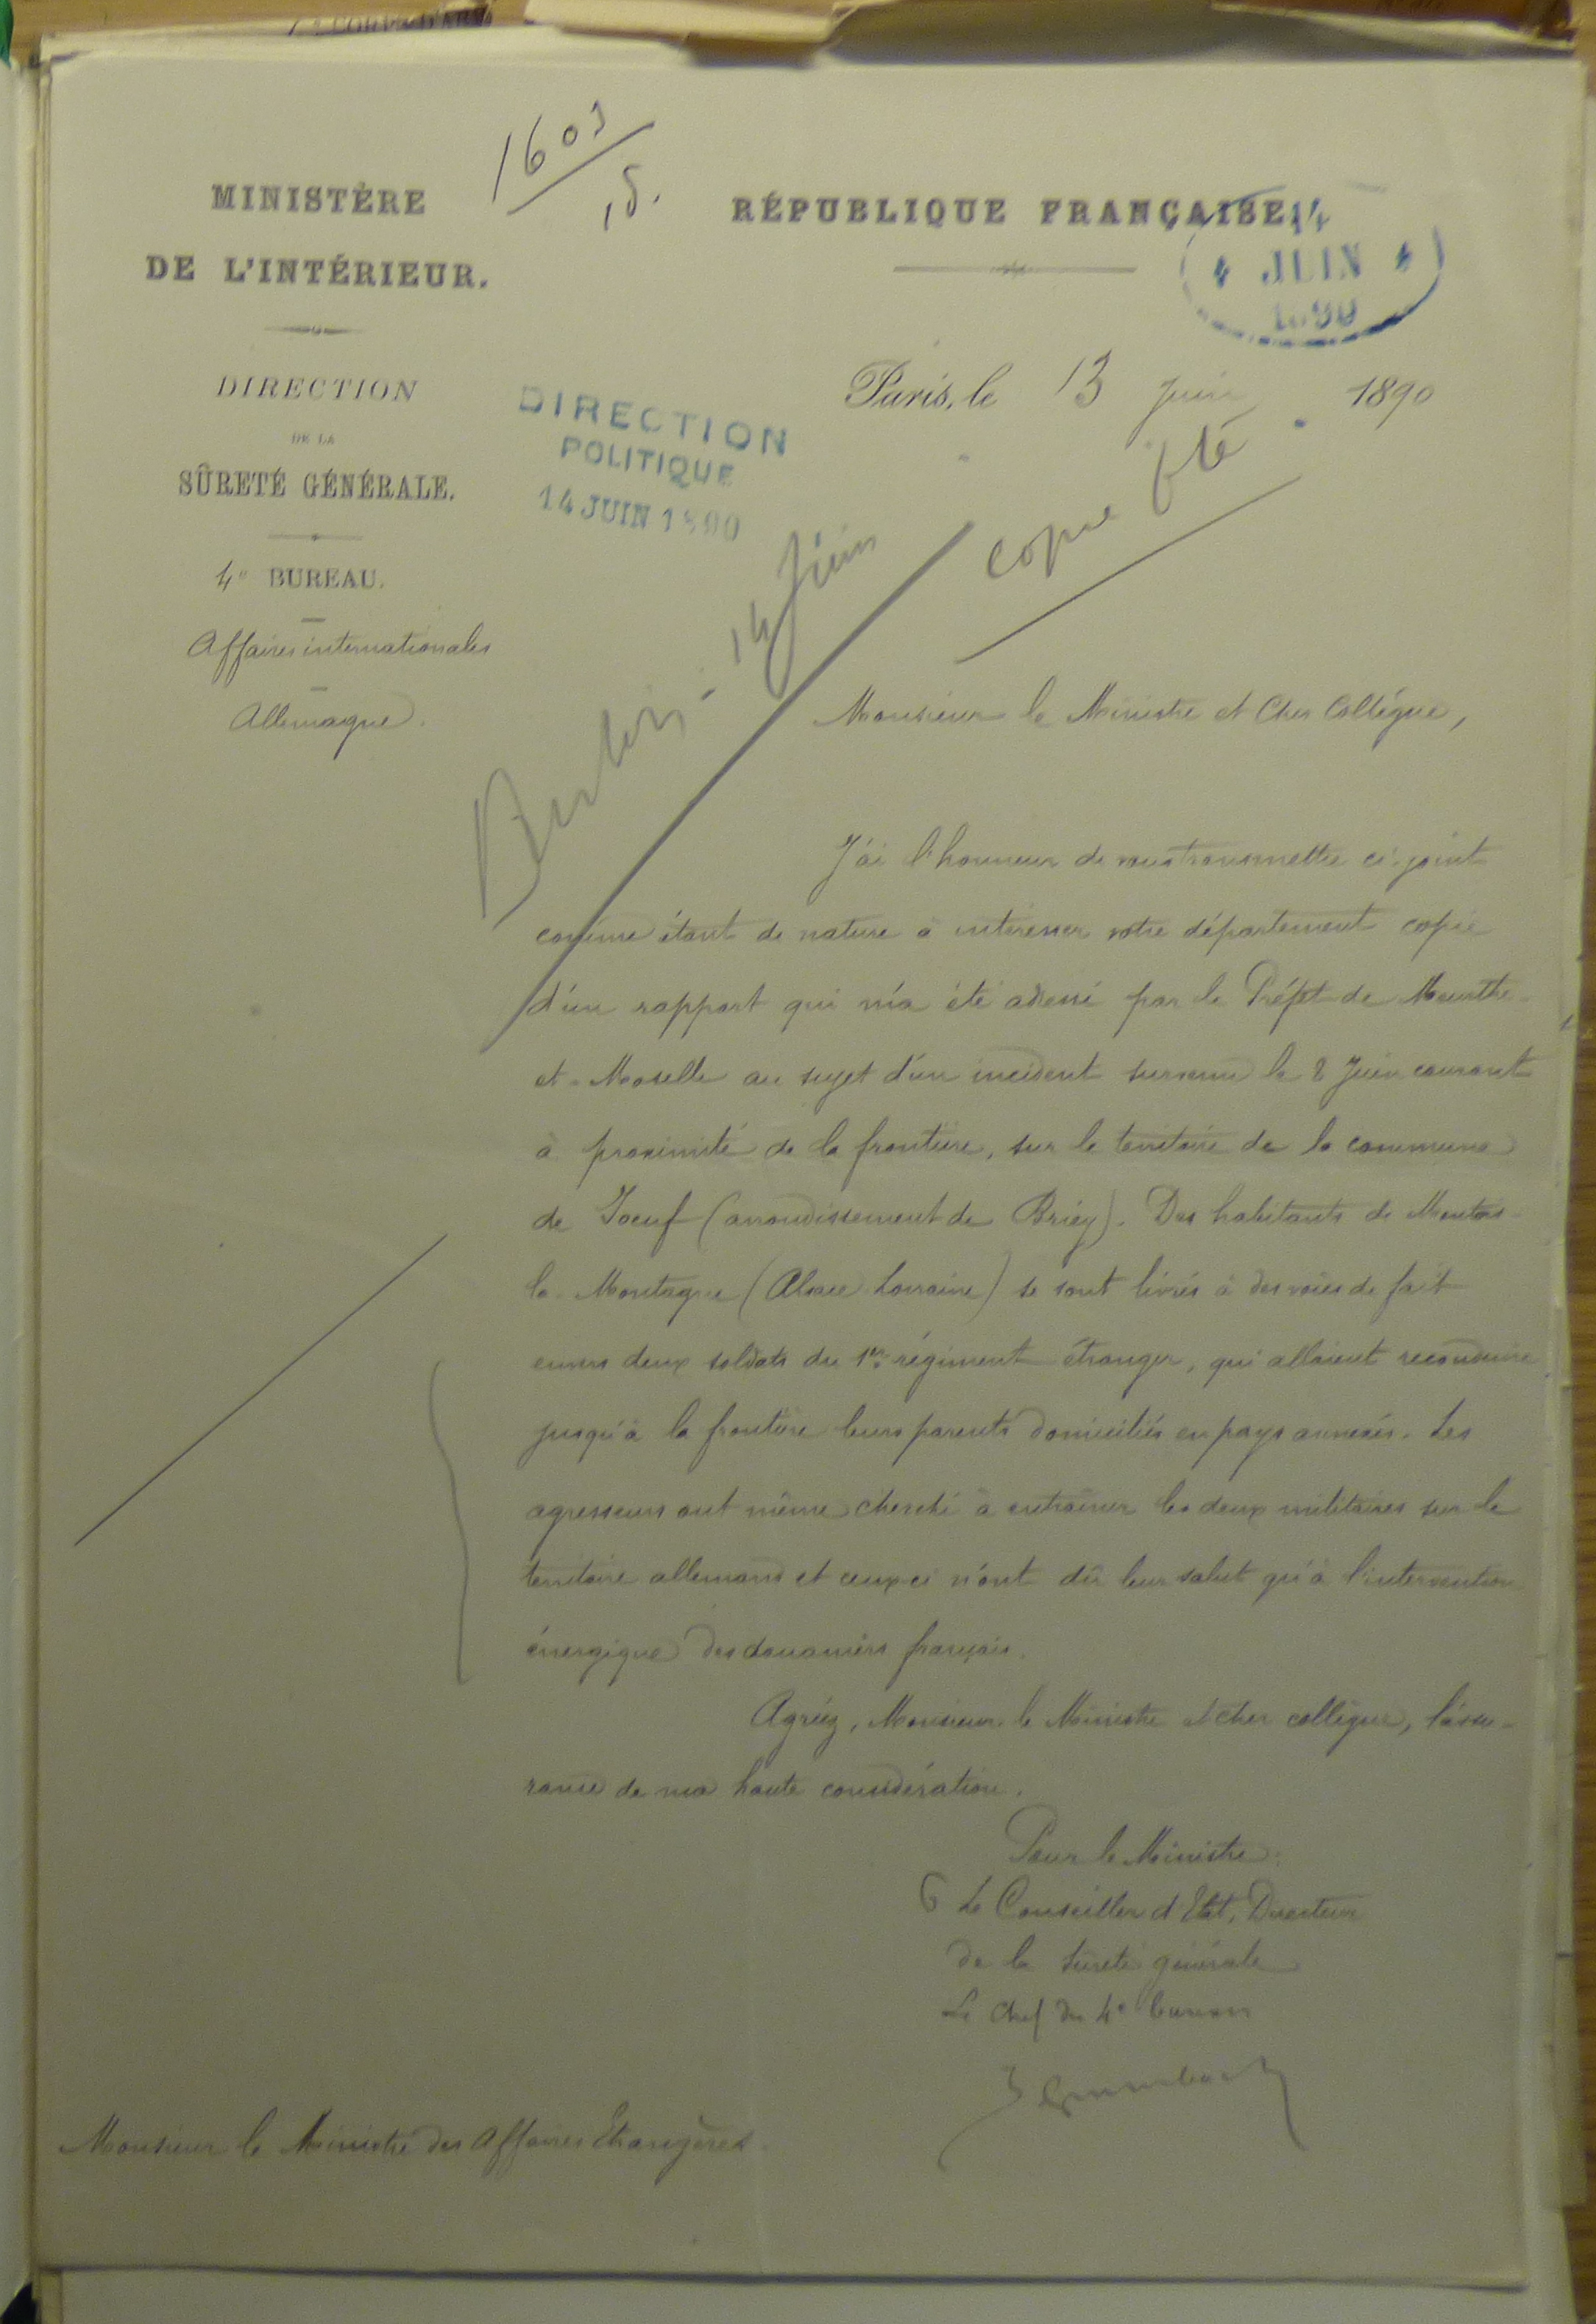 1603
MINISTÈRE
DE L'INTÉRIEUR.
DIRECTION
DE LA
SÛRETÉ GÉNÉRALE.
4e BUREAU.
Affaires internationales
Allemagne.
RÉPUBLIQUE FRANÇAISE
14
JUIN
1890
DIRECTION
POLITIQUE
14 JUIN 1890
Paris, le 13 Juin 1890
copie
Berlin - 14 Juin
Monsieur le Ministre et Cher Collègue,
J'ai l'honneur de vous transmettre ci-joint
comme étant de nature à intéresser votre département copie
d'un rapport qui m'a été adressé par le Préfet de Meurthe-
et-Moselle au sujet d'un incident survenu le 8 Juin courant
à proximité de la frontière, sur le territoire de la commune
de Joeuf (arrondissement de Briey). Des habitants de Montois-
la-Montagne (Alsace Lorraine) se sont livrés à des voies de fait
envers deux soldats du 1er régiment étranger, qui allaient reconduire
jusqu'à la frontière leurs parents domiciliés en pays annexés. Les
agresseurs ont même cherché à entraîner les deux militaires sur le
territoire allemand et ceux-ci n'ont dû leur salut qu'à l'intervention
énergique des douaniers français.
Agréez, Monsieur le Ministre et cher collègue, l'assu-
rance de ma haute considération.
Pour le Ministre:
Le Conseiller d'Etat, Directeur
de la Sûreté générale
Le Chef du 4e bureau
Monsieur le Ministre des Affaires Etrangères.